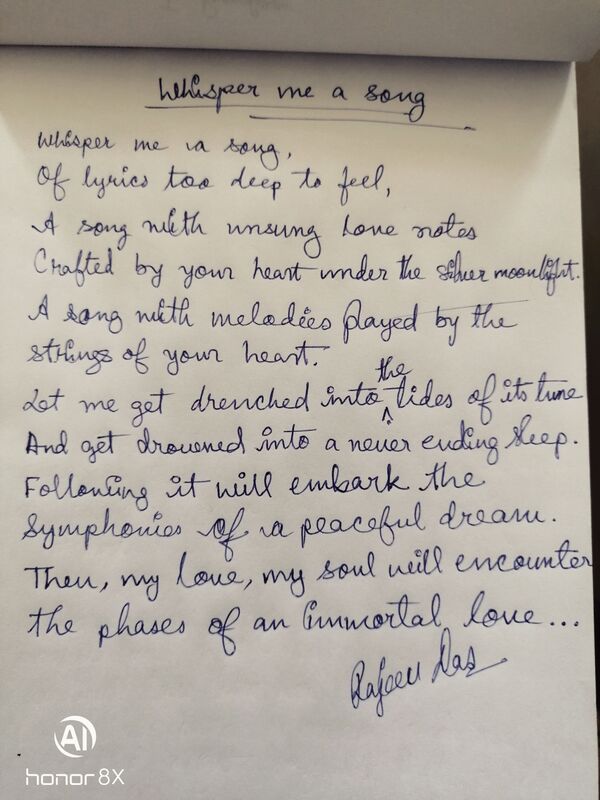 Whisper me a song
Whisper me a song,
Of lyrics too deep to feel,
A song with unsung love notes
Crafted by your heart under the silver moonlight.
A song with melodies played by the
strings of your heart.
Let me get drenched into the tides of its tune
And get drowned into a never ending sleep.
Following it will embark the
Symphonies of a peaceful dream.
Then, my love, my soul will encounter
the phases of an immortal love...
Rajeev Das
AI
honor 8X